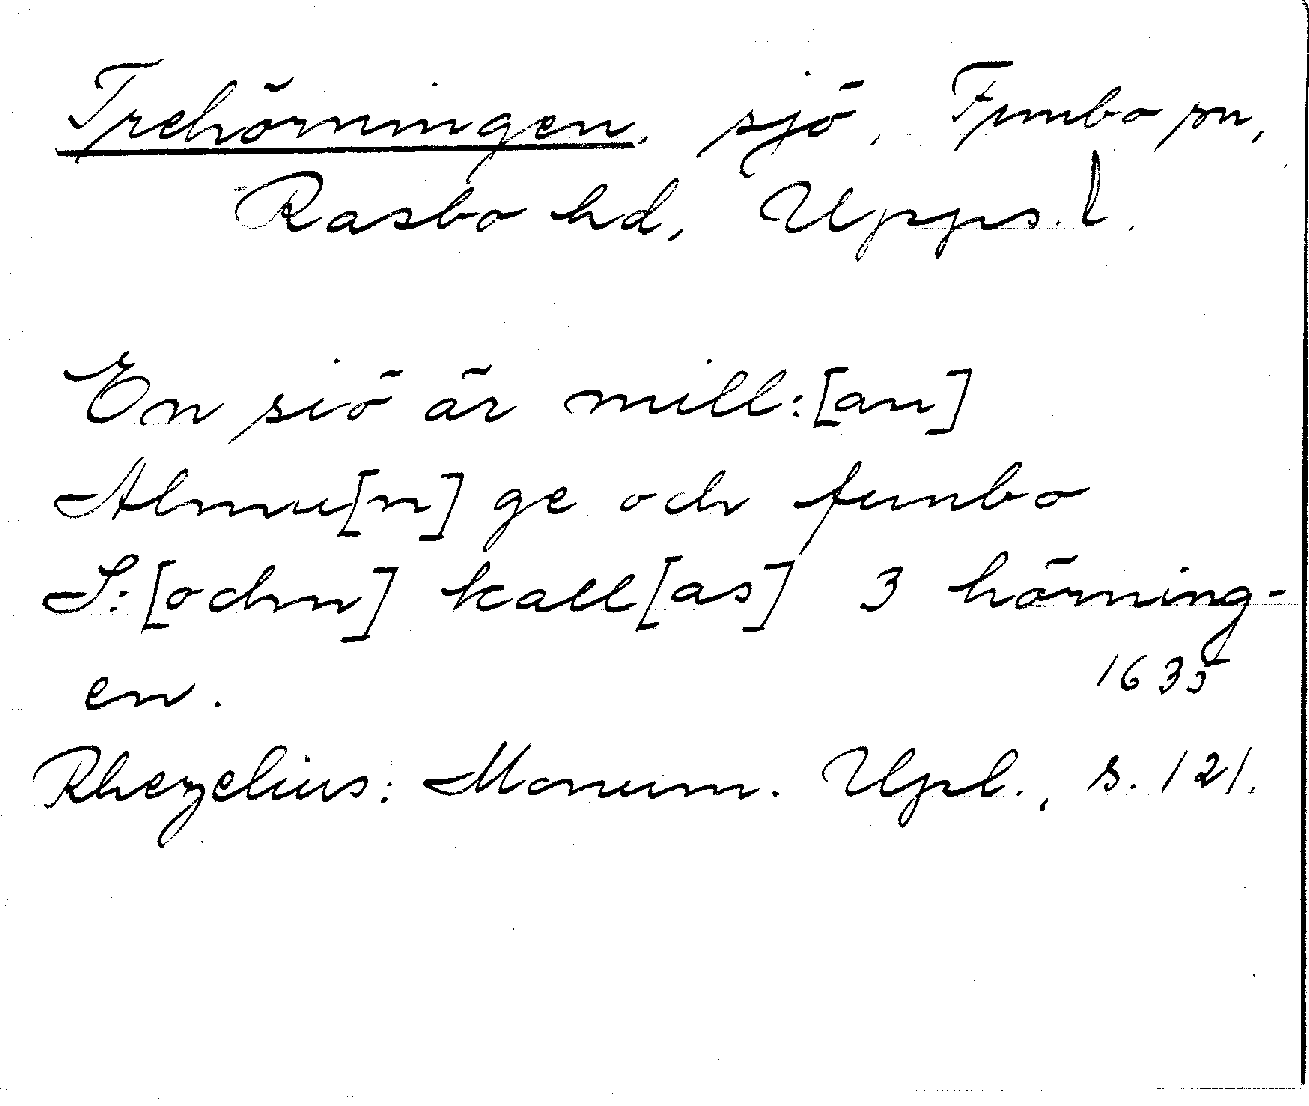 Trehörningen, sjö, Funbo sn,
Rasbo hd, Upps. l.
En siö är mill:[an]
Almu[n]ge och funbo
S:[ochn] kall[as] 3 hörning-
en.
1635
Rhezelius: Monum. Upl., s. 121.